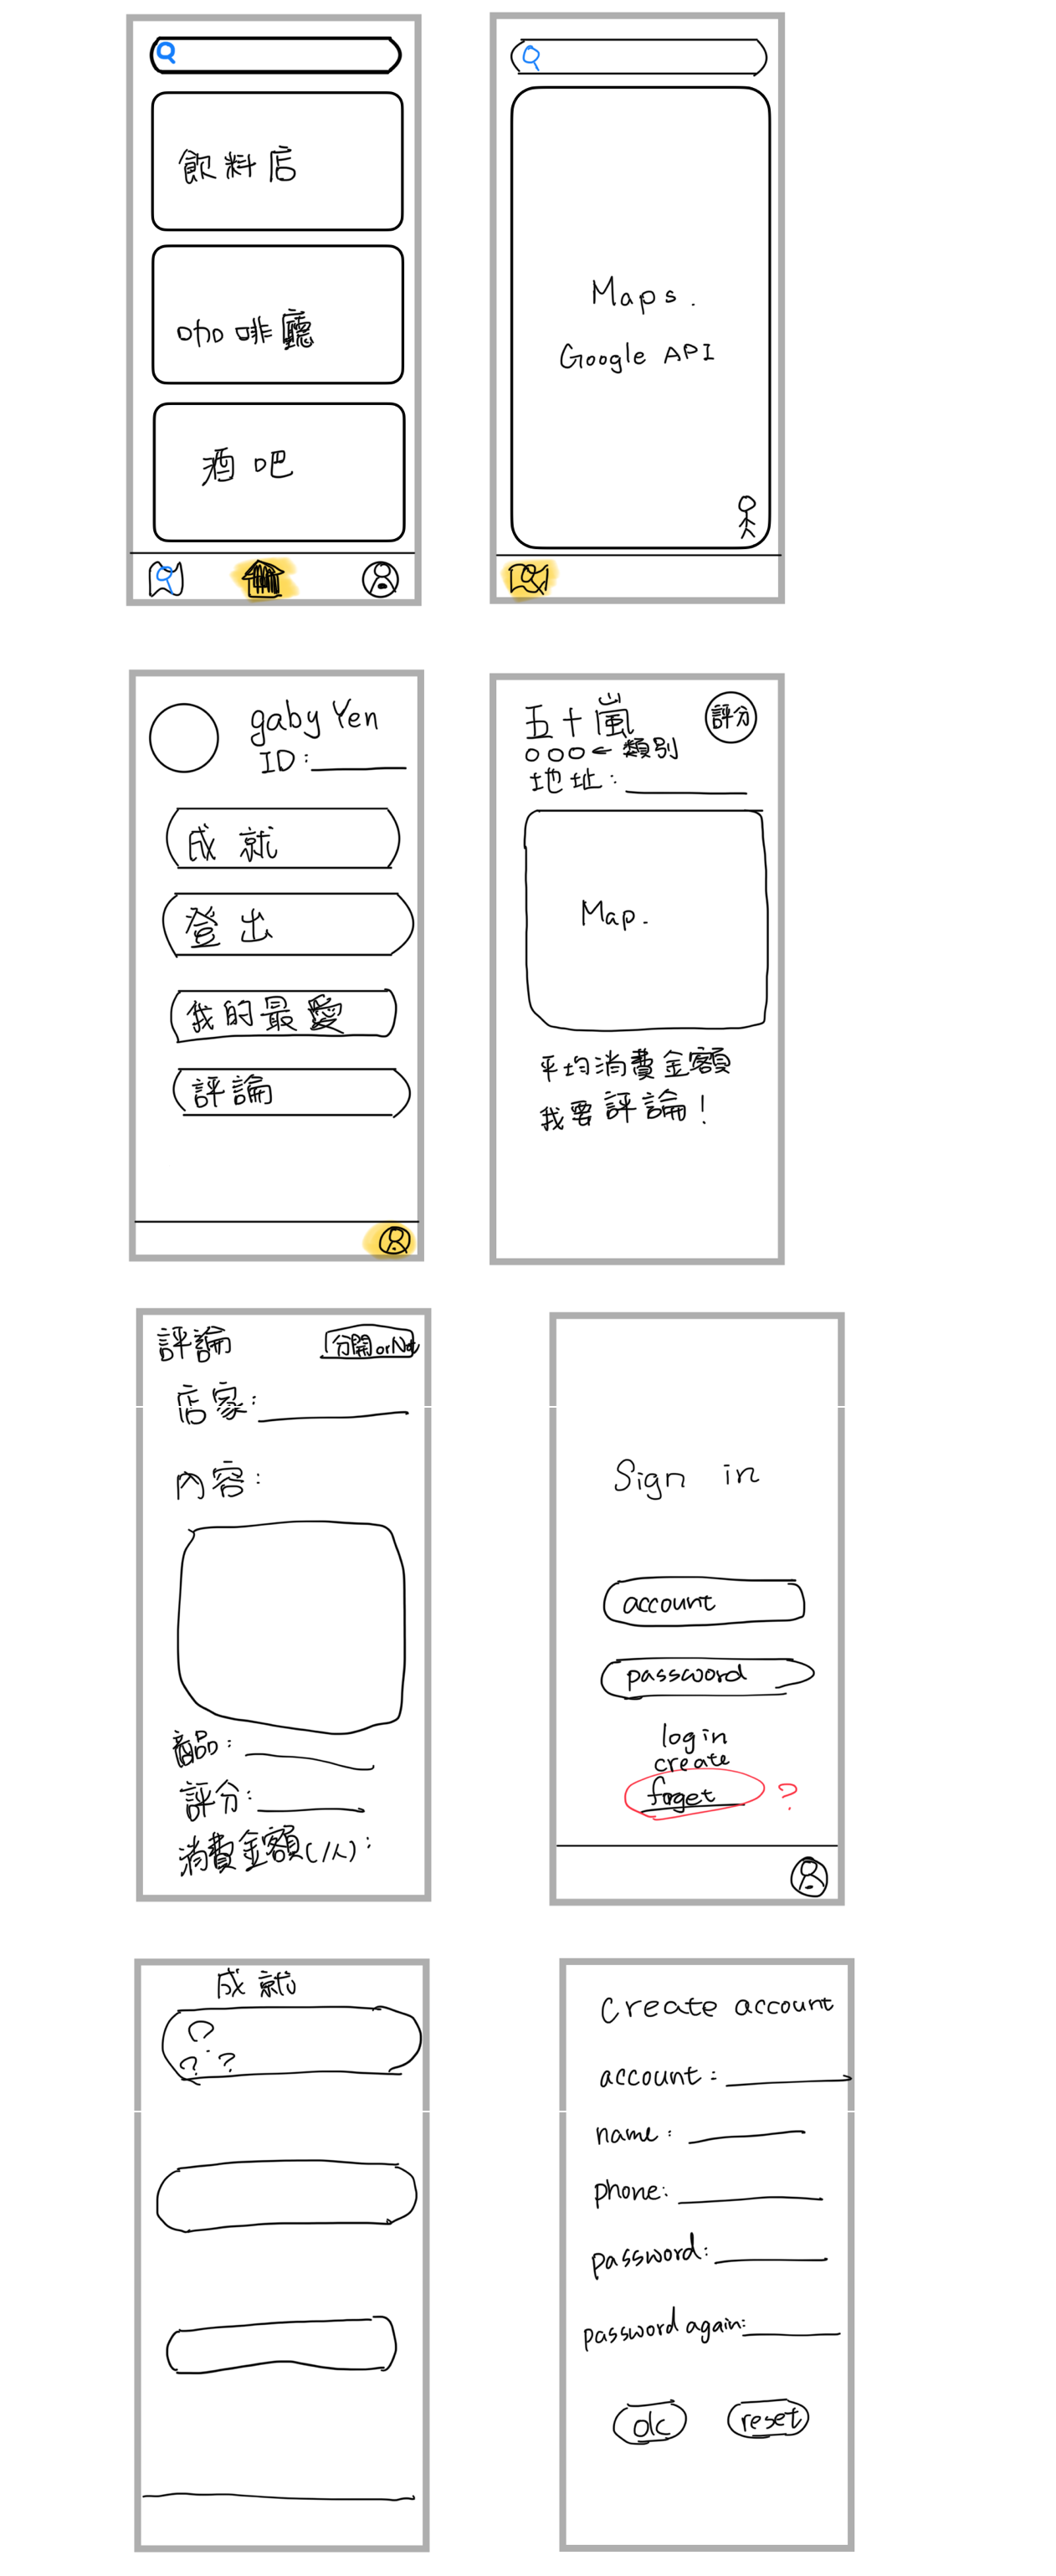 飲料店
咖啡廳
酒吧
Maps.
Google API
gaby Yen
ID:
成就
登出
我的最愛
評論
五十嵐
評分
○○○← 類別
地址:
Map.
平均消費金額
我要評論!
評論
分開 or Not
店家:
內容:
商品:
評分:
消費金額(/人):
Sign in
account
password
login
create
forget ?
成就
?
? ?
Create account
account:
name:
phone:
password:
password again:
ok
reset